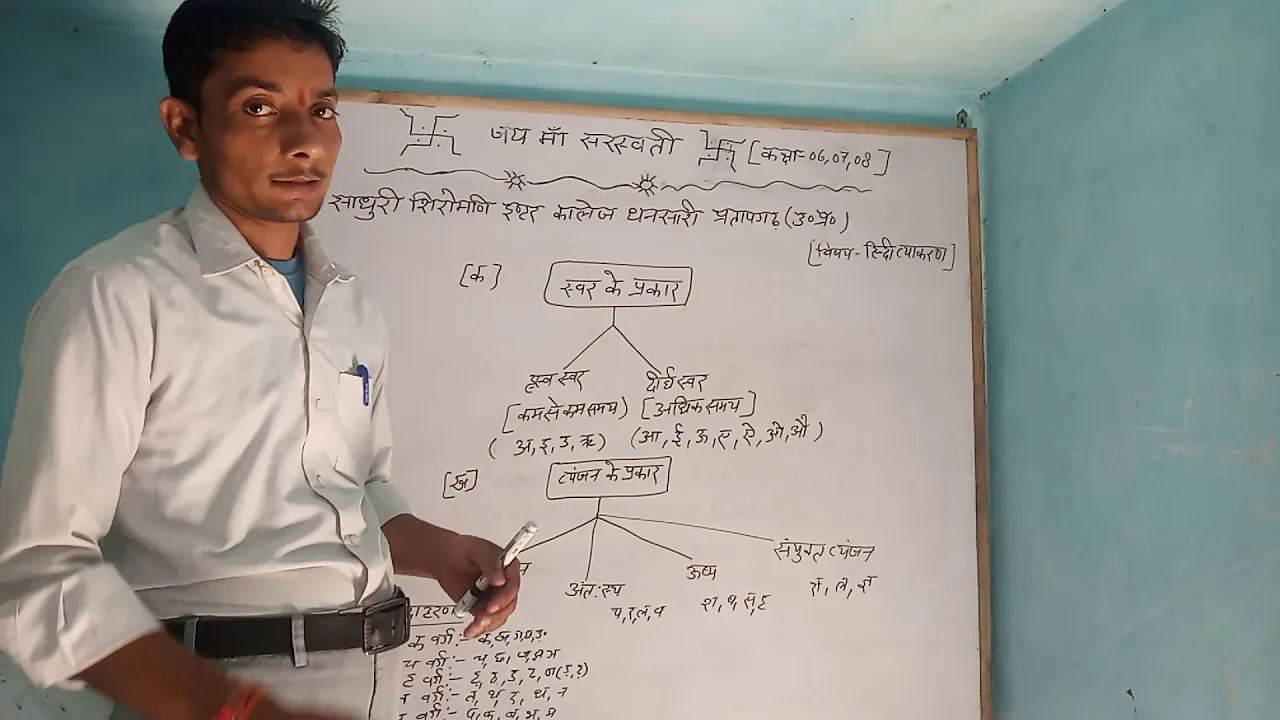 जय माँ सरस्वती [कक्षा-06,07,08]
साधुरी शिरोमणि इण्टर कालेज धनसारी प्रतापगढ़ (उ०प्र०)
[विषय - हिन्दी व्याकरण]
[क] स्वर के प्रकार
हृस्व स्वर दीर्घ स्वर
[कम से कम समय) [अधिक समय]
( अ, इ, उ, ऋ) (आ, ई, ऊ, ए, ऐ, ओ, औ )
[ख] व्यंजन के प्रकार
संयुक्त व्यंजन
अंत:स्थ ऊष्म
य, र, ल, व श, ष, स, ह
क वर्ग :- क, ख, ग, घ, ङ
च वर्ग :- च, छ, ज, झ, ञ
ट वर्ग :- ट, ठ, ड, ढ, ण (ड़, ढ़)
वर्ग :- त, थ, द, ध, न
वर्ग :- प, फ, ब, भ, म